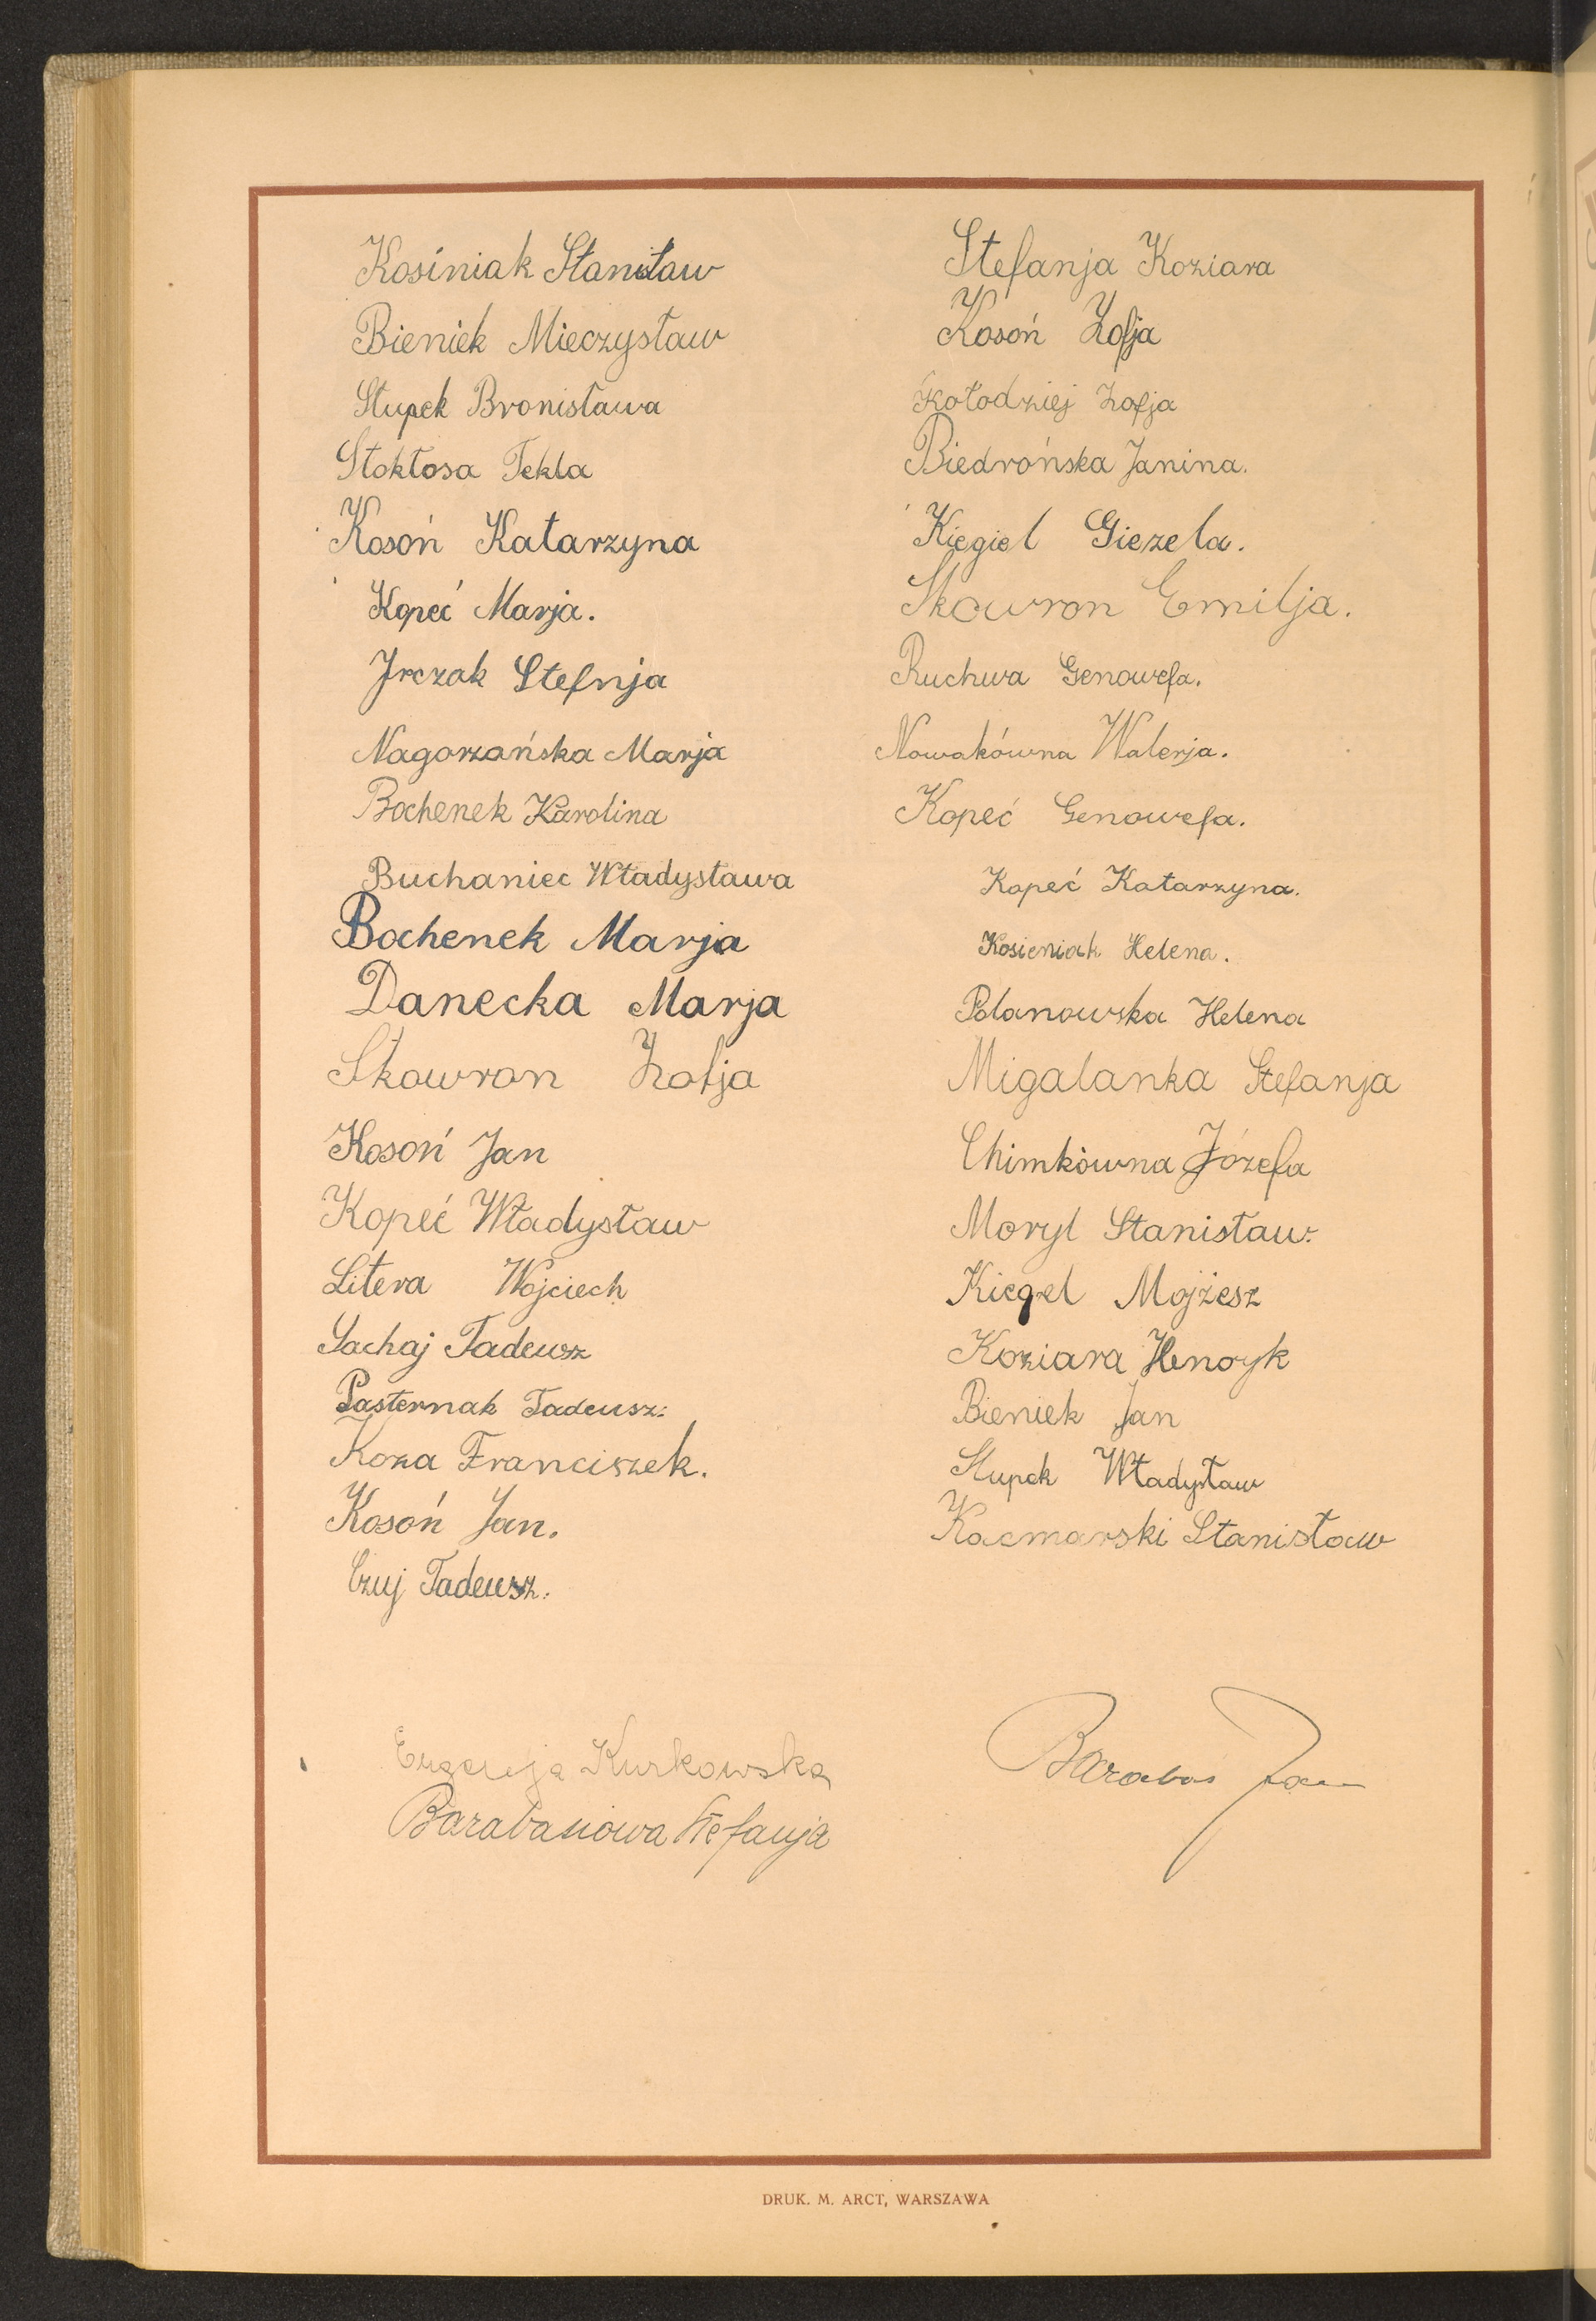 Kosiniak Stanisław
Bieniek Mieczysław
Słupek Bronisława
Stokłosa Tekla
Kosoń Katarzyna
Kopeć Marja.
Jrczak Stefnja
Nagorzańska Marja
Bochenek Karolina
Buchaniec Władysława
Bochenek Marja
Danecka Marja
Skowron Zofja
Kosoń Jan
Kopeć Władysław
Litera Wojciech
Sachaj Tadeusz
Pasternak Tadeusz.
Koza Franciszek.
Kosoń Jan.
Czuj Tadeusz.
Eugenja Kurkowska
Barabasiowa Stefanja
Stefanja Koziara
Kosoń Zofja
Kołodziej Zofja
Biedrońska Janina.
Kiegiel Giezela.
Skowron Emilja.
Ruchwa Genowefa.
Nowakówna Walerja.
Kopeć Genowefa.
Kopeć Katarzyna.
Kosieniak Helena.
Polanowska Helena
Migalanka Stefanja
Chimkówna Józefa
Moryl Stanisław.
Kiegel Mojżesz
Koziara Henryk
Bieniek Jan
Słupek Władysław
Kacmarski Stanisław
Barabaś Jan
DRUK. M. ARCT, WARSZAWA